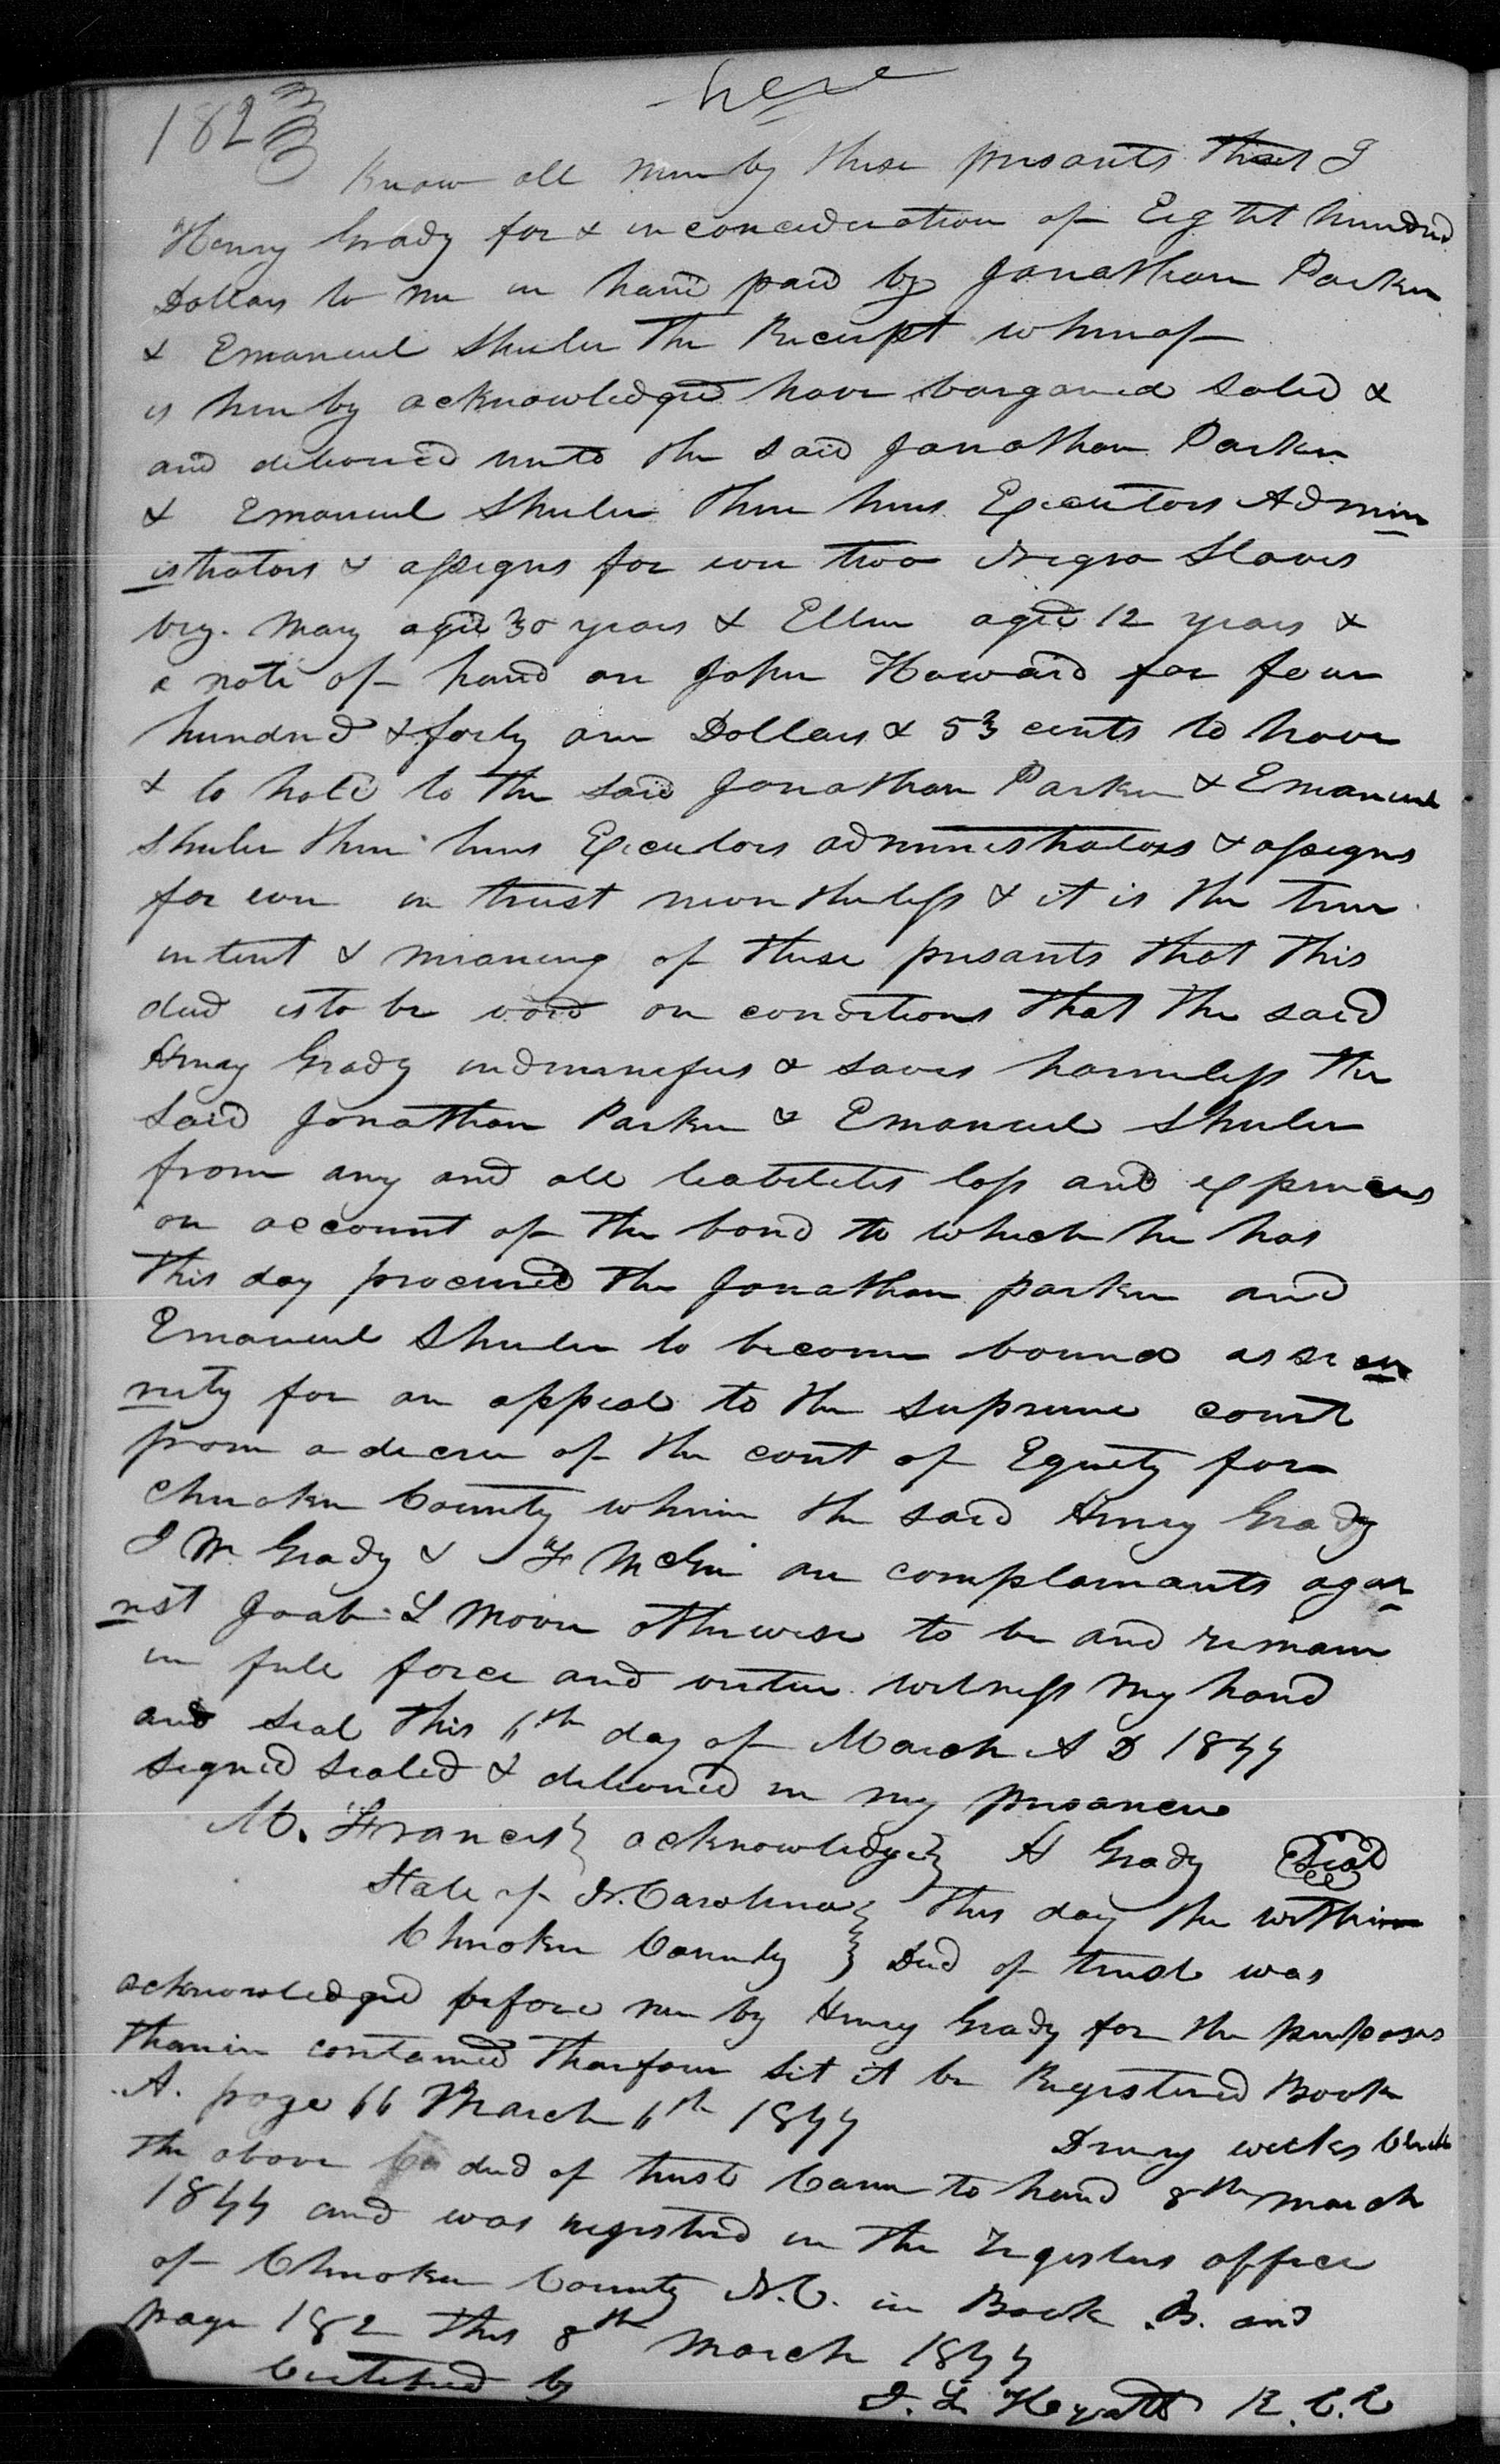 here
182
Know all men by these presants that I
Henry Grady for & in concideration of Eight hundred
Dollars to me in hand paid by Jonathan Parker
& Emanuel Shuler the Receipt whereof
is hereby acknowledged have bargained soled &
and delivered unto the said Jonathan Parker
& Emanuel Shuler their heirs Executors Admin
istrators & assigns for ever two Negro Slaves
viz. Mary aged 30 years & Ellen aged 12 years &
a note of hand on John Howard for four
hundred & forty one Dollars & 53 cents to have
& to hold to the said Jonathan Parker & Emanuel
Shuler their heirs Executors administrators & assigns
for ever in trust nevertheless & it is the true
intent & meaning of these presants that this
deed is to be void on conditions that the said
Henry Grady indemnefies & saves harmless the
said Jonathan Parker & Emanuel Shuler
from any and all leabiletes loss and expences
on account of the bond to which he has
this day procured the Jonathan parker and
Emanuel Shuler to become bound as secu
rity for an appeal to the supreme court
from a decree of the cort of Equety for
Cherokee County wherein the said Henry Grady
J M Grady & F McGee are complainants agai
nst Joab L Moore otherwise to be and remain
in full force and virtue witness my hand
and seal this 6th day of March A D 1844
signed sealed & delivered in my presance
M. Francis acknowledge H Grady Seal
State of N. Carolina This day the within
Cherokee County Deed of trust was
acknowledged before me by Henry Grady for the purposes
tharein contained tharfour let it be Registered Book
A. page 66 March 6th 1844
Drury weeks Clerk
The above deed of trust Came to hand 8th march
1844 and was registerd in the Registers office
of Cherokee County N.C. in Book B. and
page 182 this 8th march 1844
Certified by
J. L. Hyatt R.C.C